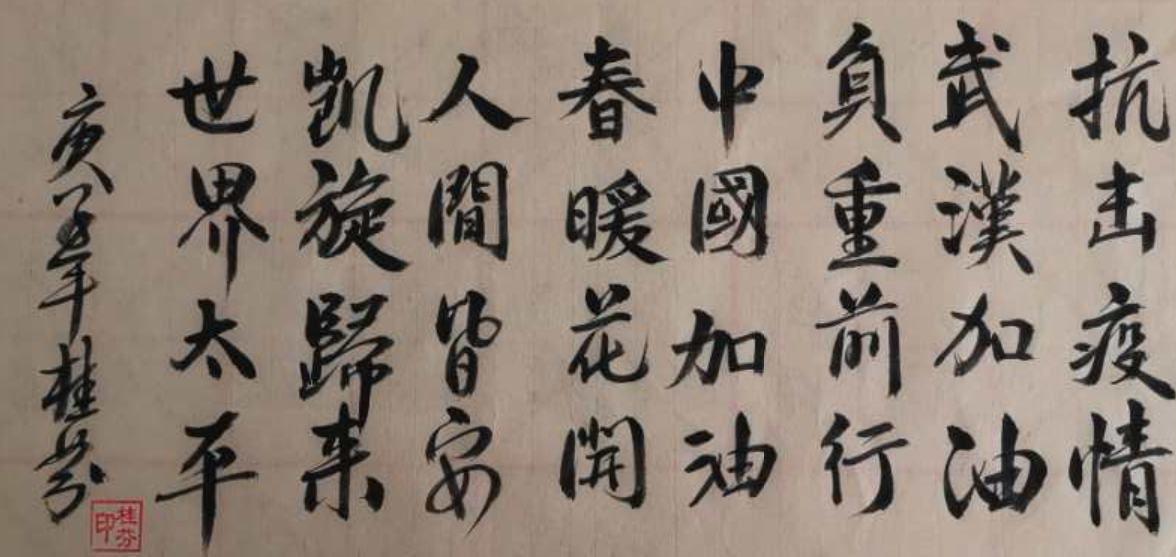 抗击疫情
武漢加油
負重前行
中國加油
春暖花開
人間皆安
凱旋歸来
世界太平
庚子年桂芬
桂芬印